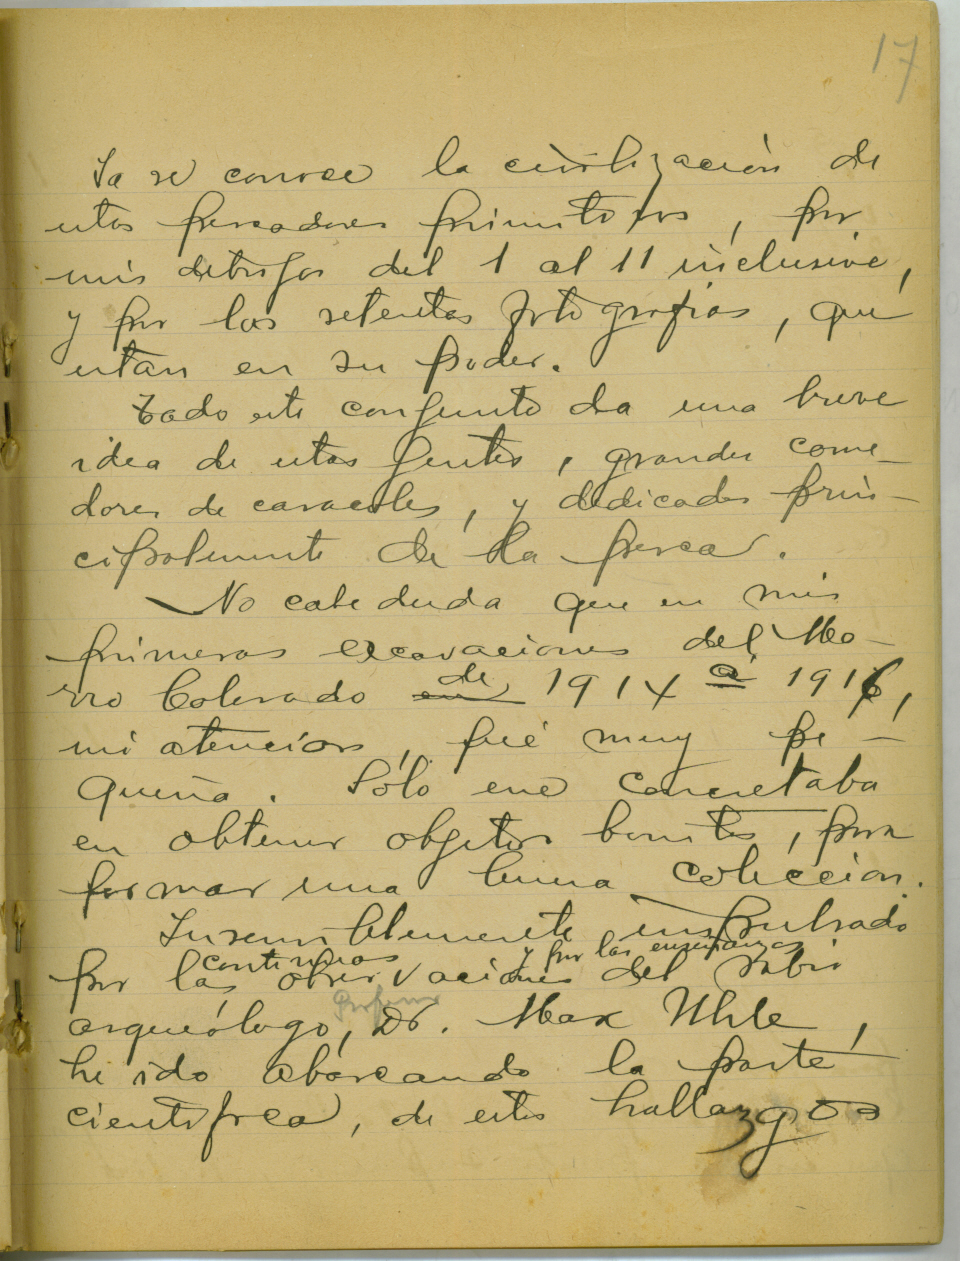 17
Ya se conoce la civilización de
estos pescadores primitivos, por
mis dibujos del 1 al 11 inclusive,
y por las setentas fotografias, que
estan en su poder.
Todo este conjunto da una breve
idea de estas gentes, grandes come-
dores de caracoles, y dedicados prin-
cipalmente de la pesca.
No cabe duda que en mis
primeras excavaciones del Mo-
rro Colorado en de 1914 a 1916,
mi atencion, fué muy pe-
queña. Sólo me concretaba
en obtener objetos bonitos, para
formar una buena colección.
Insensiblemente impulsado
continuas y por las enseñanzas
por las observaciones del sabio
profesor
arqueólogo, Dr. Max Uhle,
he ido abarcando la parte
cientifica, de estos hallazgos